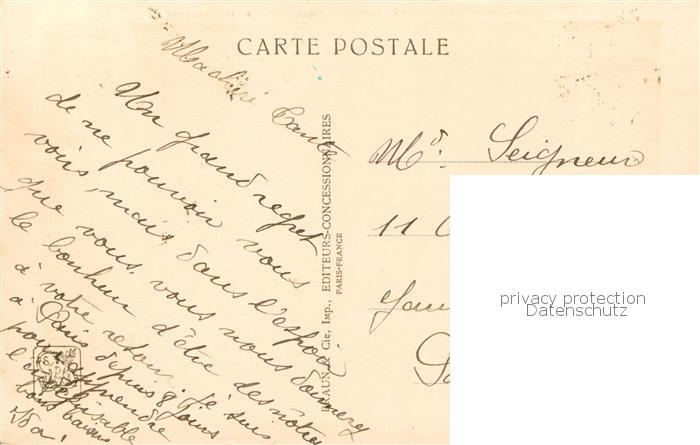 CARTE POSTALE
Ma chère Tante
Un grand regret
de ne pouvoir vous
voir, mais dans l'espoir
que vous, vous nous donnerez
le bonheur d'être des nôtres
à votre retour. je suis
à Paris depuis 8 jours
pour apprendre
l'
bons baisers
BRAUN & Cie, Imp., EDITEURS-CONCESSIONNAIRES
PARIS-FRANCE
Md. Seigneur
11
privacy protection
Datenschutz